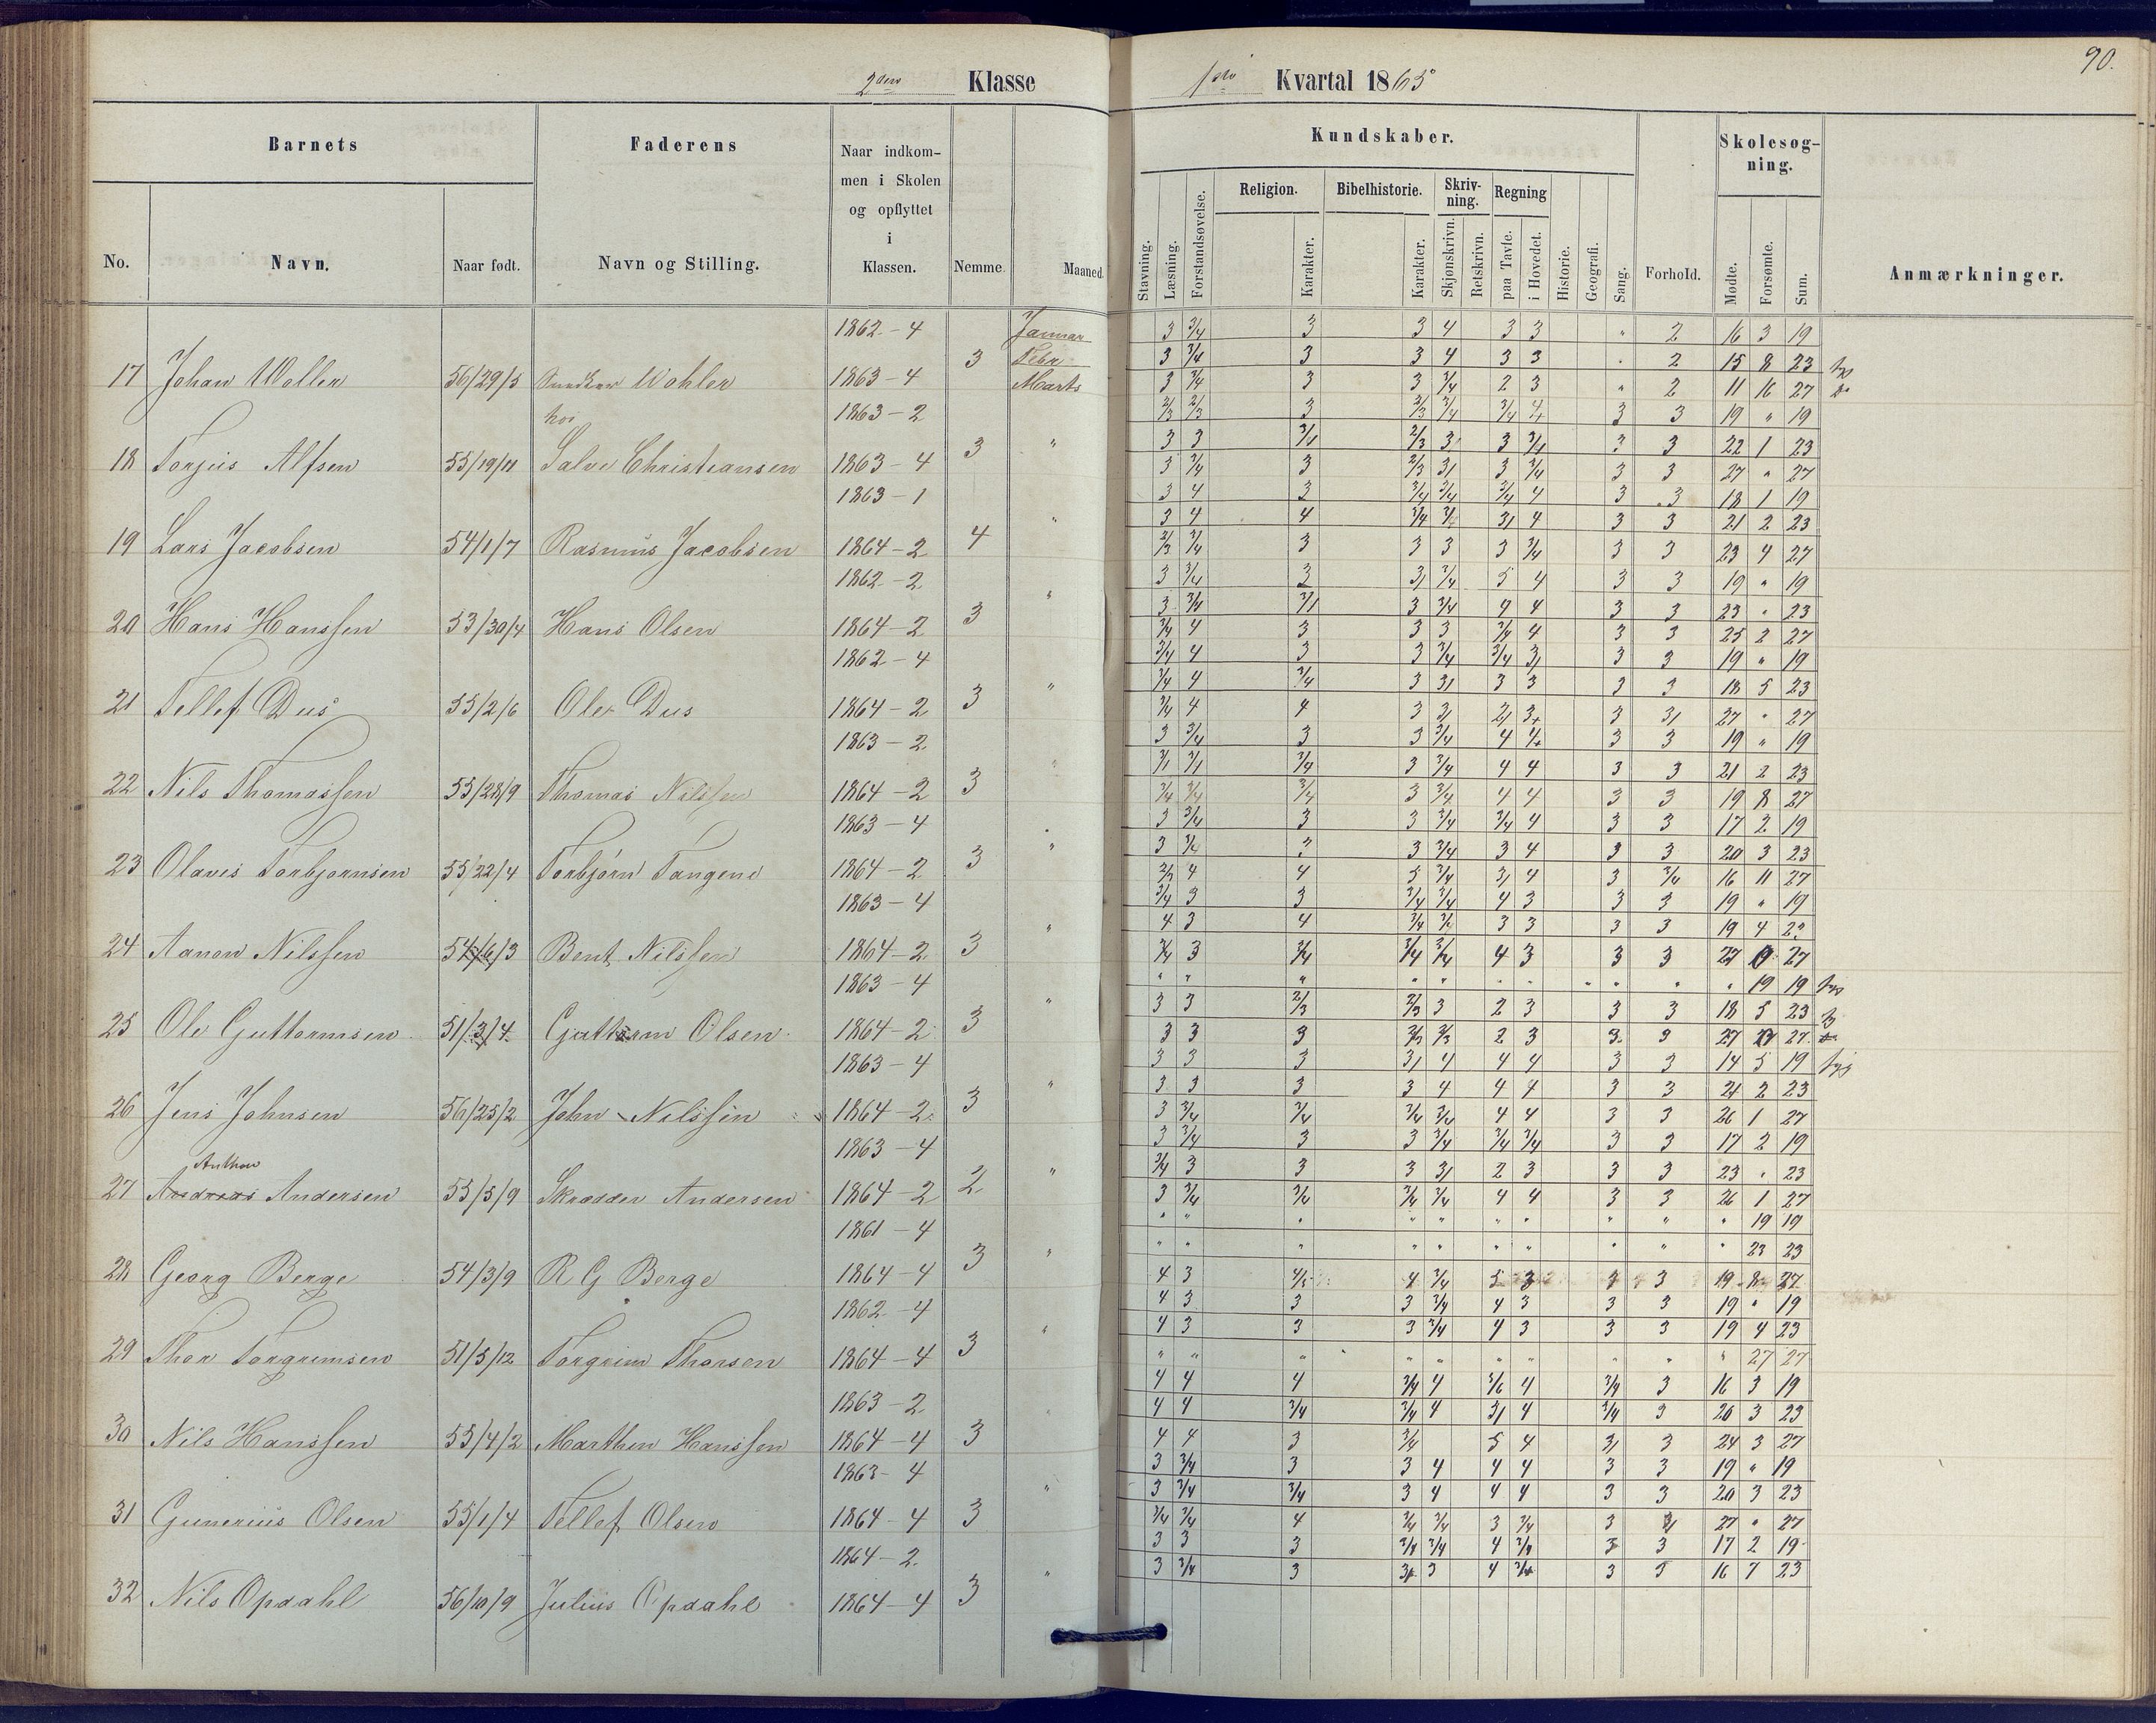 90.
2den Klasse
1ste Kvartal 1865
Barnets
Faderens
Naar indkom-
men i Skolen
og opflyttet
i
Klassen.
No.
Navn.
Naar født.
Navn og Stilling.
Nemme.
Maaned.
Kundskaber.
Skolesøg-
ning.
Religion.
Bibelhistorie.
Skriv-
ning.
Regning
Stavning.
Læsning.
Forstandsøvelse.
Karakter.
Karakter.
Skjønskrivn.
Retskrivn.
paa Tavle.
i Hovedet.
Historie.
Geografi.
Sang.
Forhold.
Mødte.
Forsømte.
Sum.
Anmærkninger.
1862 - 4 Januar 3 3/4 3 3 4 3 3 " 2 16 3 19
3 Febr 3 3/4 3 3 4 3 3 " 2 15 8 23
17 Johan Woller 56/29/5 Wohler 1863 - 4 Marts 3 3/4 3 3 3/4 2 3 " 2 11 16 27
hos 1863 - 2 2/3 2/3 3 2/3 3/4 3/4 4 3 3 19 " 19
3 " 3 3 2/3 3 3 3 22 1 23
18 Torjus Alfsen 55/19/11 Salve Christiansen 1863 - 4 3 3/4 3 2/3 3 3/4 3 3 27 " 27
1863 - 1 3 4 3 3/4 3/4 3/4 4 3 3 18 1 19
4 " 3 4 4 3/4 4 3 3 21 2 23
19 Lars Jacobsen 54/1/7 Rasmus Jacobsen 1864 - 2 2/3 3/4 3 3 3 3 3/4 3 3 23 4 27
1862 - 2 3 3/4 3 3/4 5 4 3 3 19 " 19
3 " 3 3/4 3 3/4 4 4 3 3 23 " 23
20 Hans Hanssen 53/30/4 Hans Olsen 1864 - 2 3/4 4 3 3 3 3/4 4 3 3 25 2 27
1862 - 4 3/4 4 3 3 3/4 3/4 3 3 19 " 19
3 " 3/4 4 3/4 3 3 3 3 3 18 5 23
21 Tellef Dus 55/2/6 Ole Dus 1864 - 2 3/4 4 4 3 3 27 " 27
1863 - 2 3 3/4 3 3 3/4 4 3 3 19 " 19
3 " 3/4 3 3/4 4 4 3 3 21 2 23
22 Nils Thomassen 55/28/9 Thomas Nilssen 1864 - 2 3/4 3/4 3/4 3 3/4 4 4 3 3 19 8 27
1863 - 4 3 3/4 3 3 3/4 3/4 4 3 3 17 2 19
3 " 3 3/4 3 3 3/4 3 4 3 3 20 3 23
23 Olaves Torbjornsen 55/22/4 Torbjörn Tangene 1864 - 2 4 4 3/4 4 3 3/4 16 11 27
1863 - 4 3/4 3 3 3/4 3/4 4 3 3 3 19 " 19
3 " 4 3 4 3/4 3/4 3 3 3 3 19 4 23
24 Aanon Nilssen Bent Nilssen 1864 - 2 3/4 3 3/4 3/4 3/4 4 3 3 3 27 27
1863 - 4 " " " " " " " " " " " 19 19
3 " 3 3 2/3 2/3 3 2 3 3 3 18 5 23
25 Ole Guttormsen Guttorm Olsen 1864 - 2 3 3 3 2 3 3 3 27 27
1863 - 4 3 3 3 4 4 4 3 3 14 5 19
3 " 3 3 3 3 4 4 4 3 3 21 2 23
26 Jens Johnsen 56/25/2 John Nilssen 1864 - 2 3 3/4 3/4 3/4 3/4 4 4 3 3 26 1 27
1863 - 4 3 3/4 3 3 3/4 3/4 3/4 3 3 17 2 19
Anthon
2 " 3/4 3 3 3 2 3 3 3 23 " 23
27 Andreas Andersen 55/5/9 Skrædder Andersen 1864 - 2 3 3/4 3/4 3/4 3/4 4 4 3 3 26 1 27
1861 - 4 " " " " " " " " " " 19 19
3 " " " " " " " " " " " 23 23
28 Georg Berge 54/3/9 R G Berge 1864 - 4 4 3 4 3/4 5 3 3 3 19 8 27
1862 - 4 4 3 3 3 3/4 4 3 3 3 19 " 19
3 " 4 3 3 3 3/4 4 3 3 3 19 4 23
29 Thor Torgrimsen 51/5/12 Torgrim Thorsen 1864 - 4 " " " " " " " " " " 27 27
1863 - 2 4 4 4 3/4 4 4 3/4 3 16 3 19
3 4 4 3/4 3/4 4 4 3/4 3 20 3 23
30 Nils Hanssen 55/4/2 Marthen Hanssen 1864 - 4 4 4 3 3/4 5 4 3 24 3 27
1863 - 4 3 3/4 3 3 4 4 4 3 3 19 " 19
3 " 3 3/4 3/4 3 4 4 4 3 3 20 3 23
31 Gunerius Olsen 55/1/4 Tellef Olsen 1864 - 4 3/4 3/4 4 3/4 3/4 3 3/4 3 27 " 27
1864 - 2 3 3 3 3/4 3/4 4 3/4 3 3 17 2 19
3 " 3 3/4 3 3 4 3 3 16 7 23
32 Nils Opdahl 56/10/9 Julius Opdahl 1864 - 4